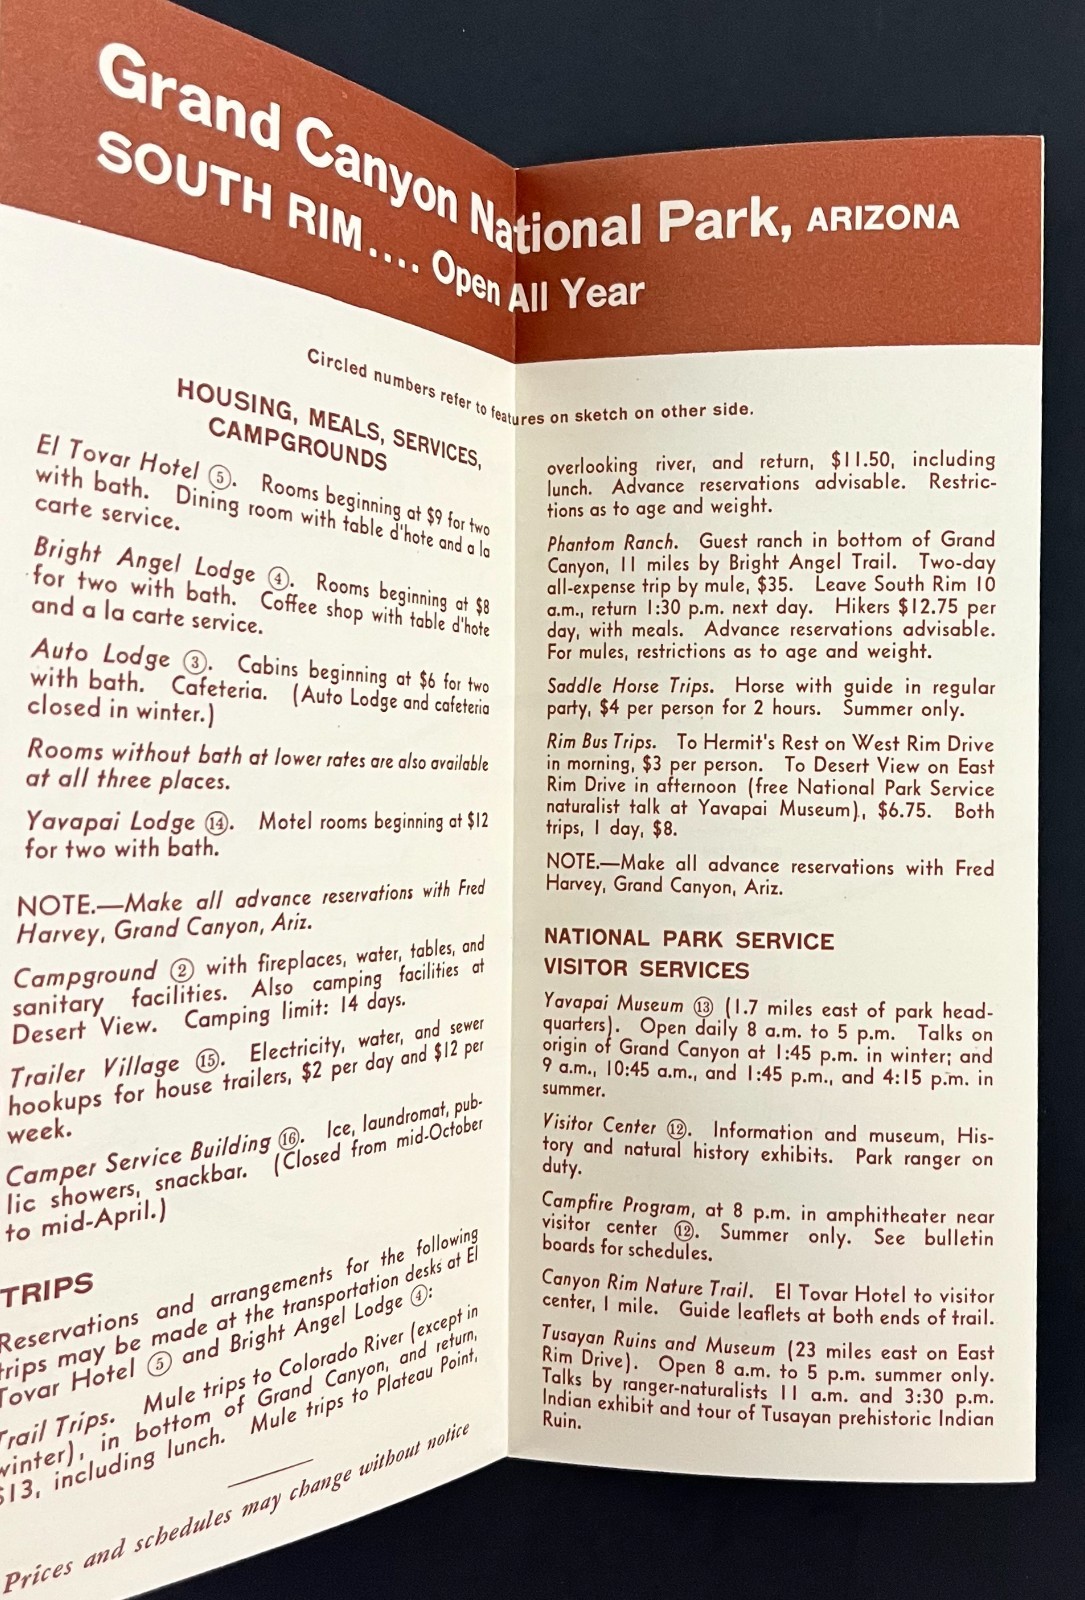 Grand Canyon National Park, ARIZONA
SOUTH RIM.... Open All Year
Circled numbers refer to features on sketch on other side.
HOUSING, MEALS, SERVICES,
CAMPGROUNDS
El Tovar Hotel ⑤. Rooms beginning at $9 for two
with bath. Dining room with table d'hote and a la
carte service.
Bright Angel Lodge ④. Rooms beginning at $8
for two with bath. Coffee shop with table d'hote
and a la carte service.
Auto Lodge ③. Cabins beginning at $6 for two
with bath. Cafeteria. (Auto Lodge and cafeteria
closed in winter.)
Rooms without bath at lower rates are also available
at all three places.
Yavapai Lodge ⑭. Motel rooms beginning at $12
for two with bath.
NOTE.—Make all advance reservations with Fred
Harvey, Grand Canyon, Ariz.
Campground ② with fireplaces, water, tables, and
sanitary facilities. Also camping facilities at
Desert View. Camping limit: 14 days.
Trailer Village ⑮. Electricity, water, and sewer
hookups for house trailers, $2 per day and $12 per
week.
Camper Service Building ⑯. Ice, laundromat, pub-
lic showers, snackbar. (Closed from mid-October
to mid-April.)
TRIPS
Reservations and arrangements for the following
trips may be made at the transportation desks at El
Tovar Hotel ⑤ and Bright Angel Lodge ④:
Trail Trips. Mule trips to Colorado River (except in
winter), in bottom of Grand Canyon, and return,
$13, including lunch. Mule trips to Plateau Point,
Prices and schedules may change without notice
overlooking river, and return, $11.50, including
lunch. Advance reservations advisable. Restric-
tions as to age and weight.
Phantom Ranch. Guest ranch in bottom of Grand
Canyon, 11 miles by Bright Angel Trail. Two-day
all-expense trip by mule, $35. Leave South Rim 10
a.m., return 1:30 p.m. next day. Hikers $12.75 per
day, with meals. Advance reservations advisable.
For mules, restrictions as to age and weight.
Saddle Horse Trips. Horse with guide in regular
party, $4 per person for 2 hours. Summer only.
Rim Bus Trips. To Hermit's Rest on West Rim Drive
in morning, $3 per person. To Desert View on East
Rim Drive in afternoon (free National Park Service
naturalist talk at Yavapai Museum), $6.75. Both
trips, 1 day, $8.
NOTE.—Make all advance reservations with Fred
Harvey, Grand Canyon, Ariz.
NATIONAL PARK SERVICE
VISITOR SERVICES
Yavapai Museum ⑬ (1.7 miles east of park head-
quarters). Open daily 8 a.m. to 5 p.m. Talks on
origin of Grand Canyon at 1:45 p.m. in winter; and
9 a.m., 10:45 a.m., and 1:45 p.m., and 4:15 p.m. in
summer.
Visitor Center ⑫. Information and museum, His-
tory and natural history exhibits. Park ranger on
duty.
Campfire Program, at 8 p.m. in amphitheater near
visitor center ⑫. Summer only. See bulletin
boards for schedules.
Canyon Rim Nature Trail. El Tovar Hotel to visitor
center, 1 mile. Guide leaflets at both ends of trail.
Tusayan Ruins and Museum (23 miles east on East
Rim Drive). Open 8 a.m. to 5 p.m. summer only.
Talks by ranger-naturalists 11 a.m. and 3:30 p.m.
Indian exhibit and tour of Tusayan prehistoric Indian
Ruin.